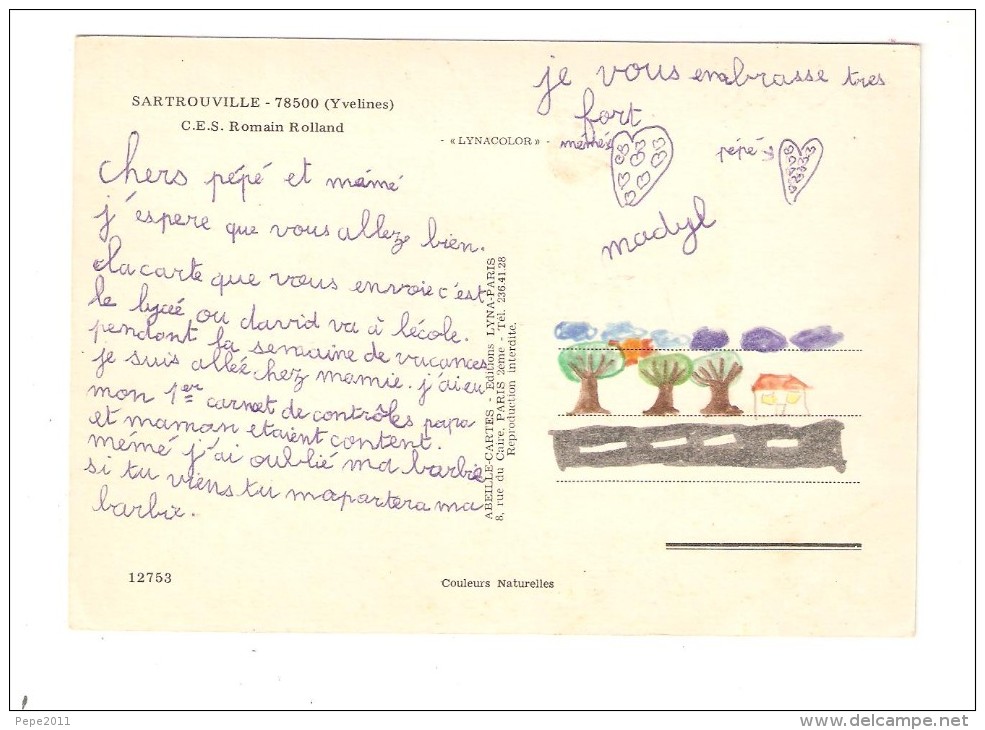 SARTROUVILLE - 78500 (Yvelines)
C.E.S. Romain Rolland
- « LYNACOLOR » -
chers pépé et mémé
j'espere que vous allez bien.
la carte que vous envoie c'est
le lyceé ou david va à lécole.
pendant la semaine de vacances
je suis allée chez mamie. j'ai eu
mon 1er carnet de contrôles papa
et maman etaient content.
mémé j'ai oublié ma barbie
si tu viens tu maportera ma
barbie.
je vous embrasse tres
fort
mémé
pépé
madyl
ABEILLE-CARTES - Editions LYNA-PARIS
8, rue du Caire, PARIS 2eme - Tél. 236.41.28
Reproduction interdite.
12753
Couleurs Naturelles
Pepe2011
www.delcampe.net